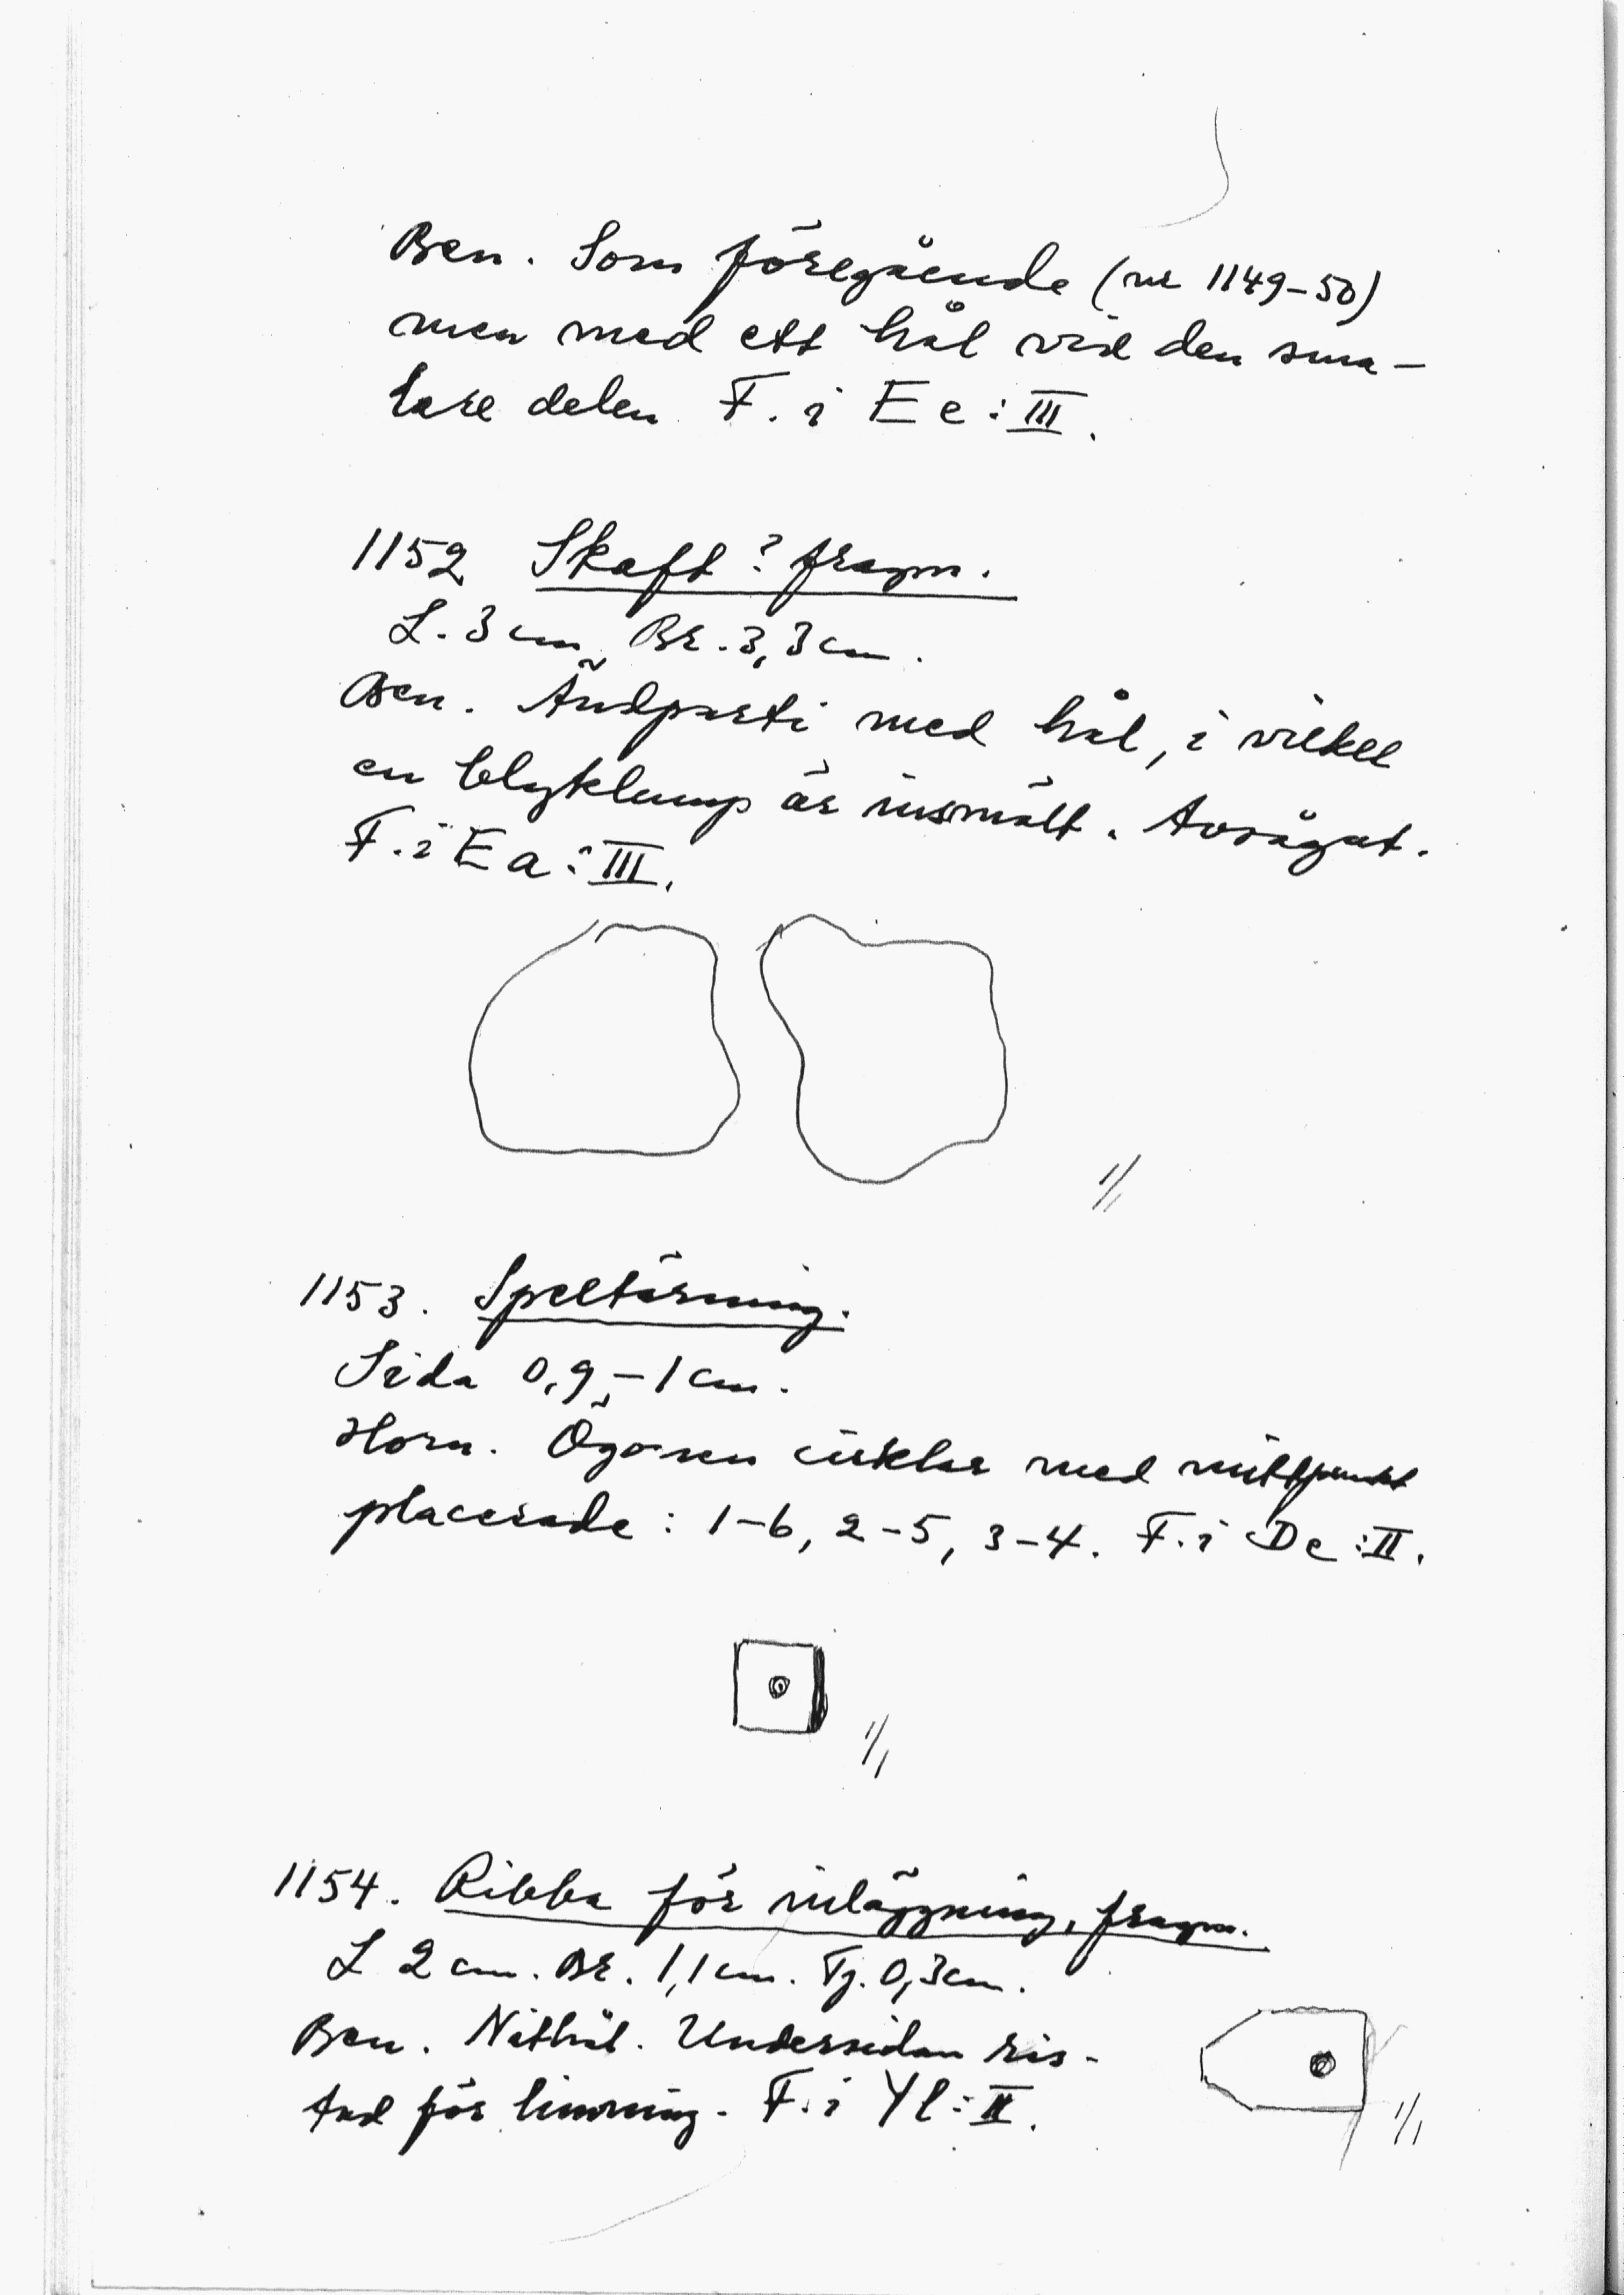 Ben. Som föregående (nr 1149-50)
men med ett hål vid den sma-
lare delen F. i Ee:III.
1152 Skaft? fragm.
L. 3 cm, Br. 3,3 cm.
Ben. Ändparti med hål, i vilket
en blyklump är insmält. Avsågat.
F. i Ea:III.
1/1
1153. Speltärning.
Sida 0,9-1 cm.
Horn. Ögonen cirklar med mittpunkt
placerade: 1-6, 2-5, 3-4. F. i De:II.
1/1
1154. Ribba för inläggning, fragm.
L 2 cm. Br. 1,1 cm. Tj. 0,3 cm.
Ben. Nithål. Undersidan ris-
tad för limning. F. i Yl:II.
1/1